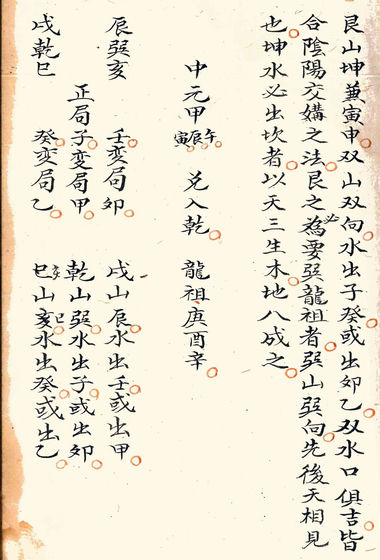 艮山坤兼寅申双山双向水出子癸或出卯乙双水口俱吉皆
合陰陽交媾之法艮之必為要巽龍祖者巽山巽向先後天相見
也坤水必出坎者以天三生木地八成之
中元甲寅辰午 兌入乾 龍祖庚酉辛
辰巽亥 壬变局卯 戌山辰水出壬或出甲
正局子变局甲 乾山巽水出子或出卯
戌乾巳 癸变局乙 巳山亥水出癸或出乙